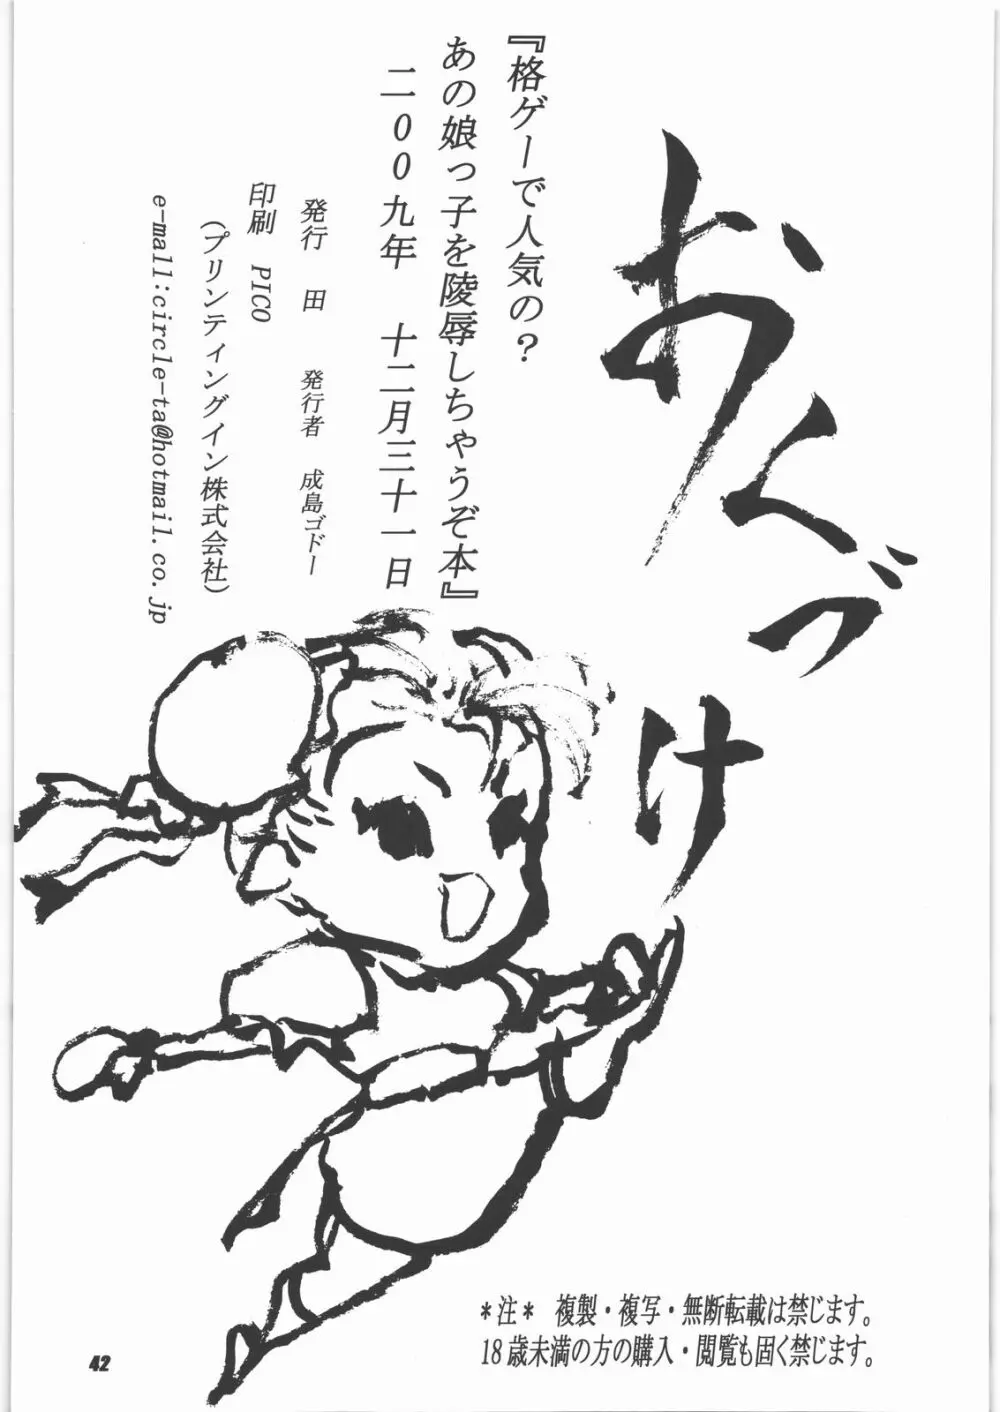 おくづけ
『格ゲーで人気の？
あの娘っ子を陵辱しちゃうぞ本』
二〇〇九年　十二月三十一日
発行　田　発行者　成島ゴドー
印刷　PICO
（プリンティングイン株式会社）
e-mall:circle-ta@hotmail.co.jp
＊注＊　複製・複写・無断転載は禁じます。
18歳未満の方の購入・閲覧も固く禁じます。
42